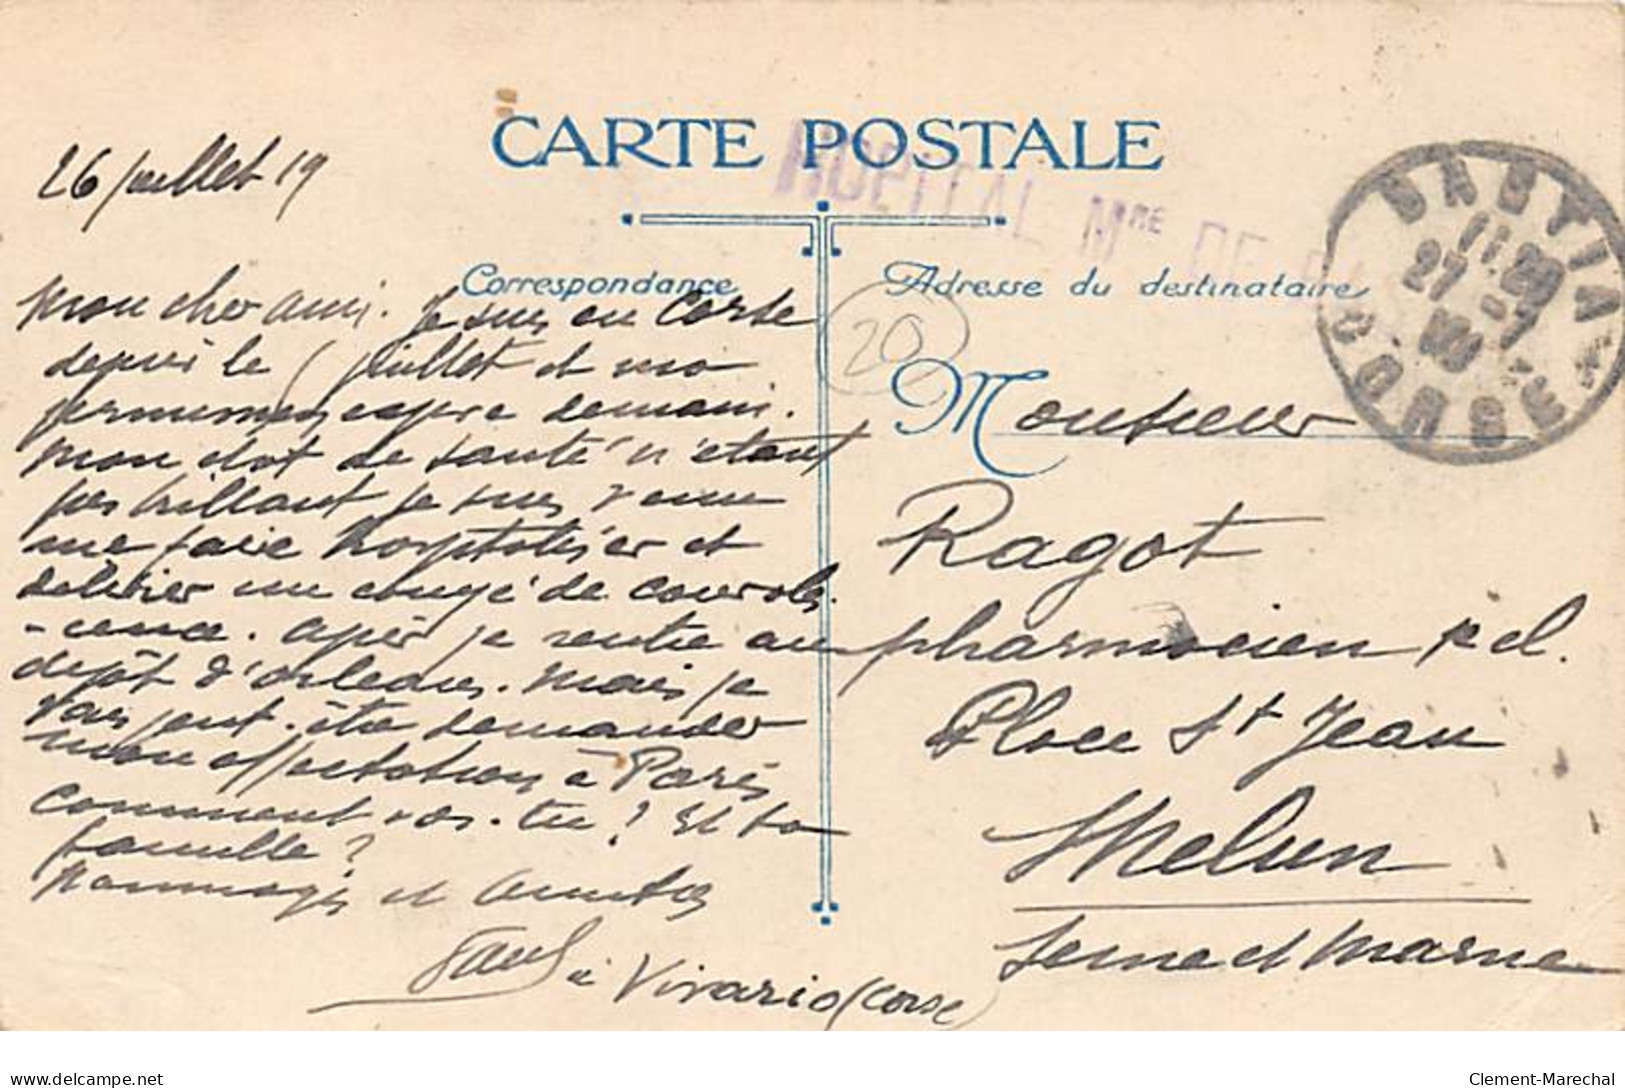 CARTE POSTALE
HOPITAL Mme DE
26 juillet 19
Correspondance
Adresse du destinataire
BASTIA
11 20
27 -7
CORSE
20
mon cher ami. Je suis en Corse
depuis le juillet et ma
permission expire demain.
mon état de santé n'étant
pas brillant je suis venu
me faire hospitaliser et
délivrer un congé de convales
-cence. après je rentre au
dépôt d'orléans. mais je
vais peut-être demander
mon affectation à Paris
comment vas-tu ? Et ta
famille ?
hommages et amitiés
Paul
à Vivario (Corse)
Monsieur
Ragot
pharmacien
Place St Jean
Melun
Seine et Marne
www.delcampe.net
Clement-Marechal